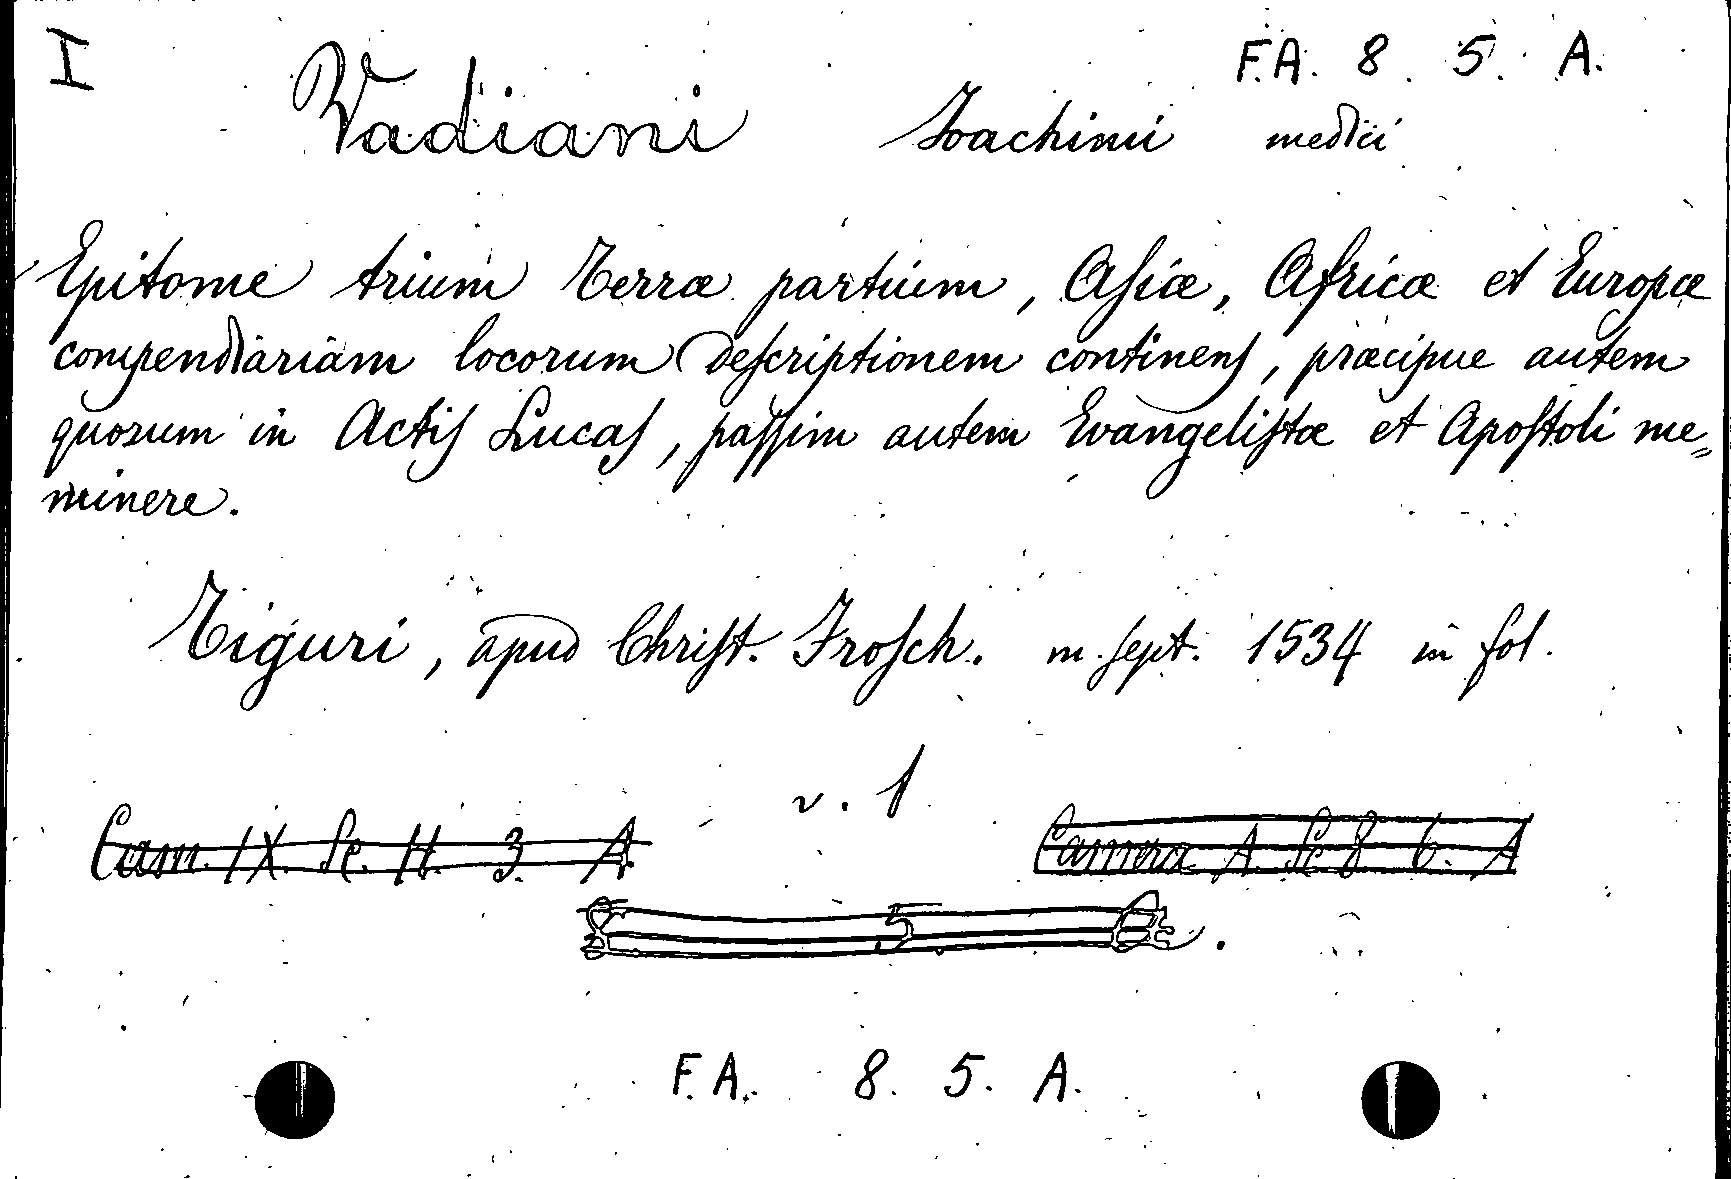 I
F.A. 8. 5. A.
Vadiani Joachimi medici
Epitome trium Terræ partium, Aſiæ, Africæ et Europæ
compendiariam locorum deſcriptionem continens, præcipue autem
quorum in Actis Lucas, paſſim autem Evangeliſtæ et Apoſtoli me=
minere.
Tiguri, apud Chriſt. Froſch. m. ſept. 1534 in fol.
v. 1
Cam. IX. Sc. H. 3. A
Camera A. Sc 8 6. A
5
F.A. 8. 5. A.